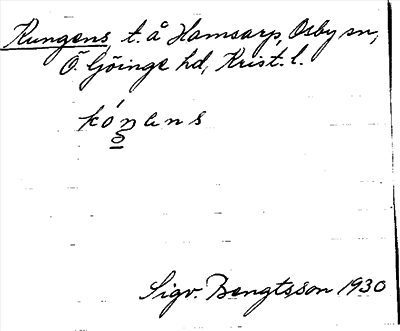 Kungens, t. å Hamsarp, Osby sn,
Ö. Göinge hd, Krist. l.
kóŋens
Sigv. Bengtsson 1930